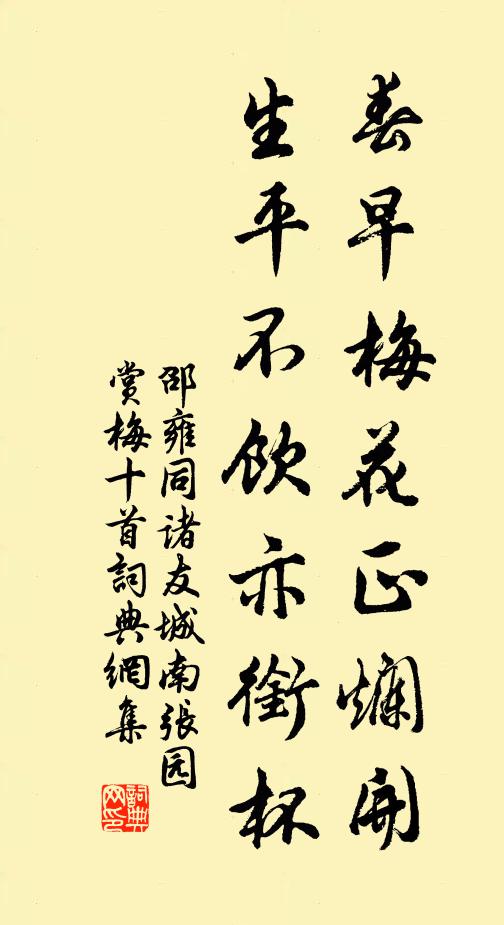 春早梅花正爛開
生平不飲亦銜杯
邵雍同诸友城南張园
赏梅十首詞典網集
詞典网印